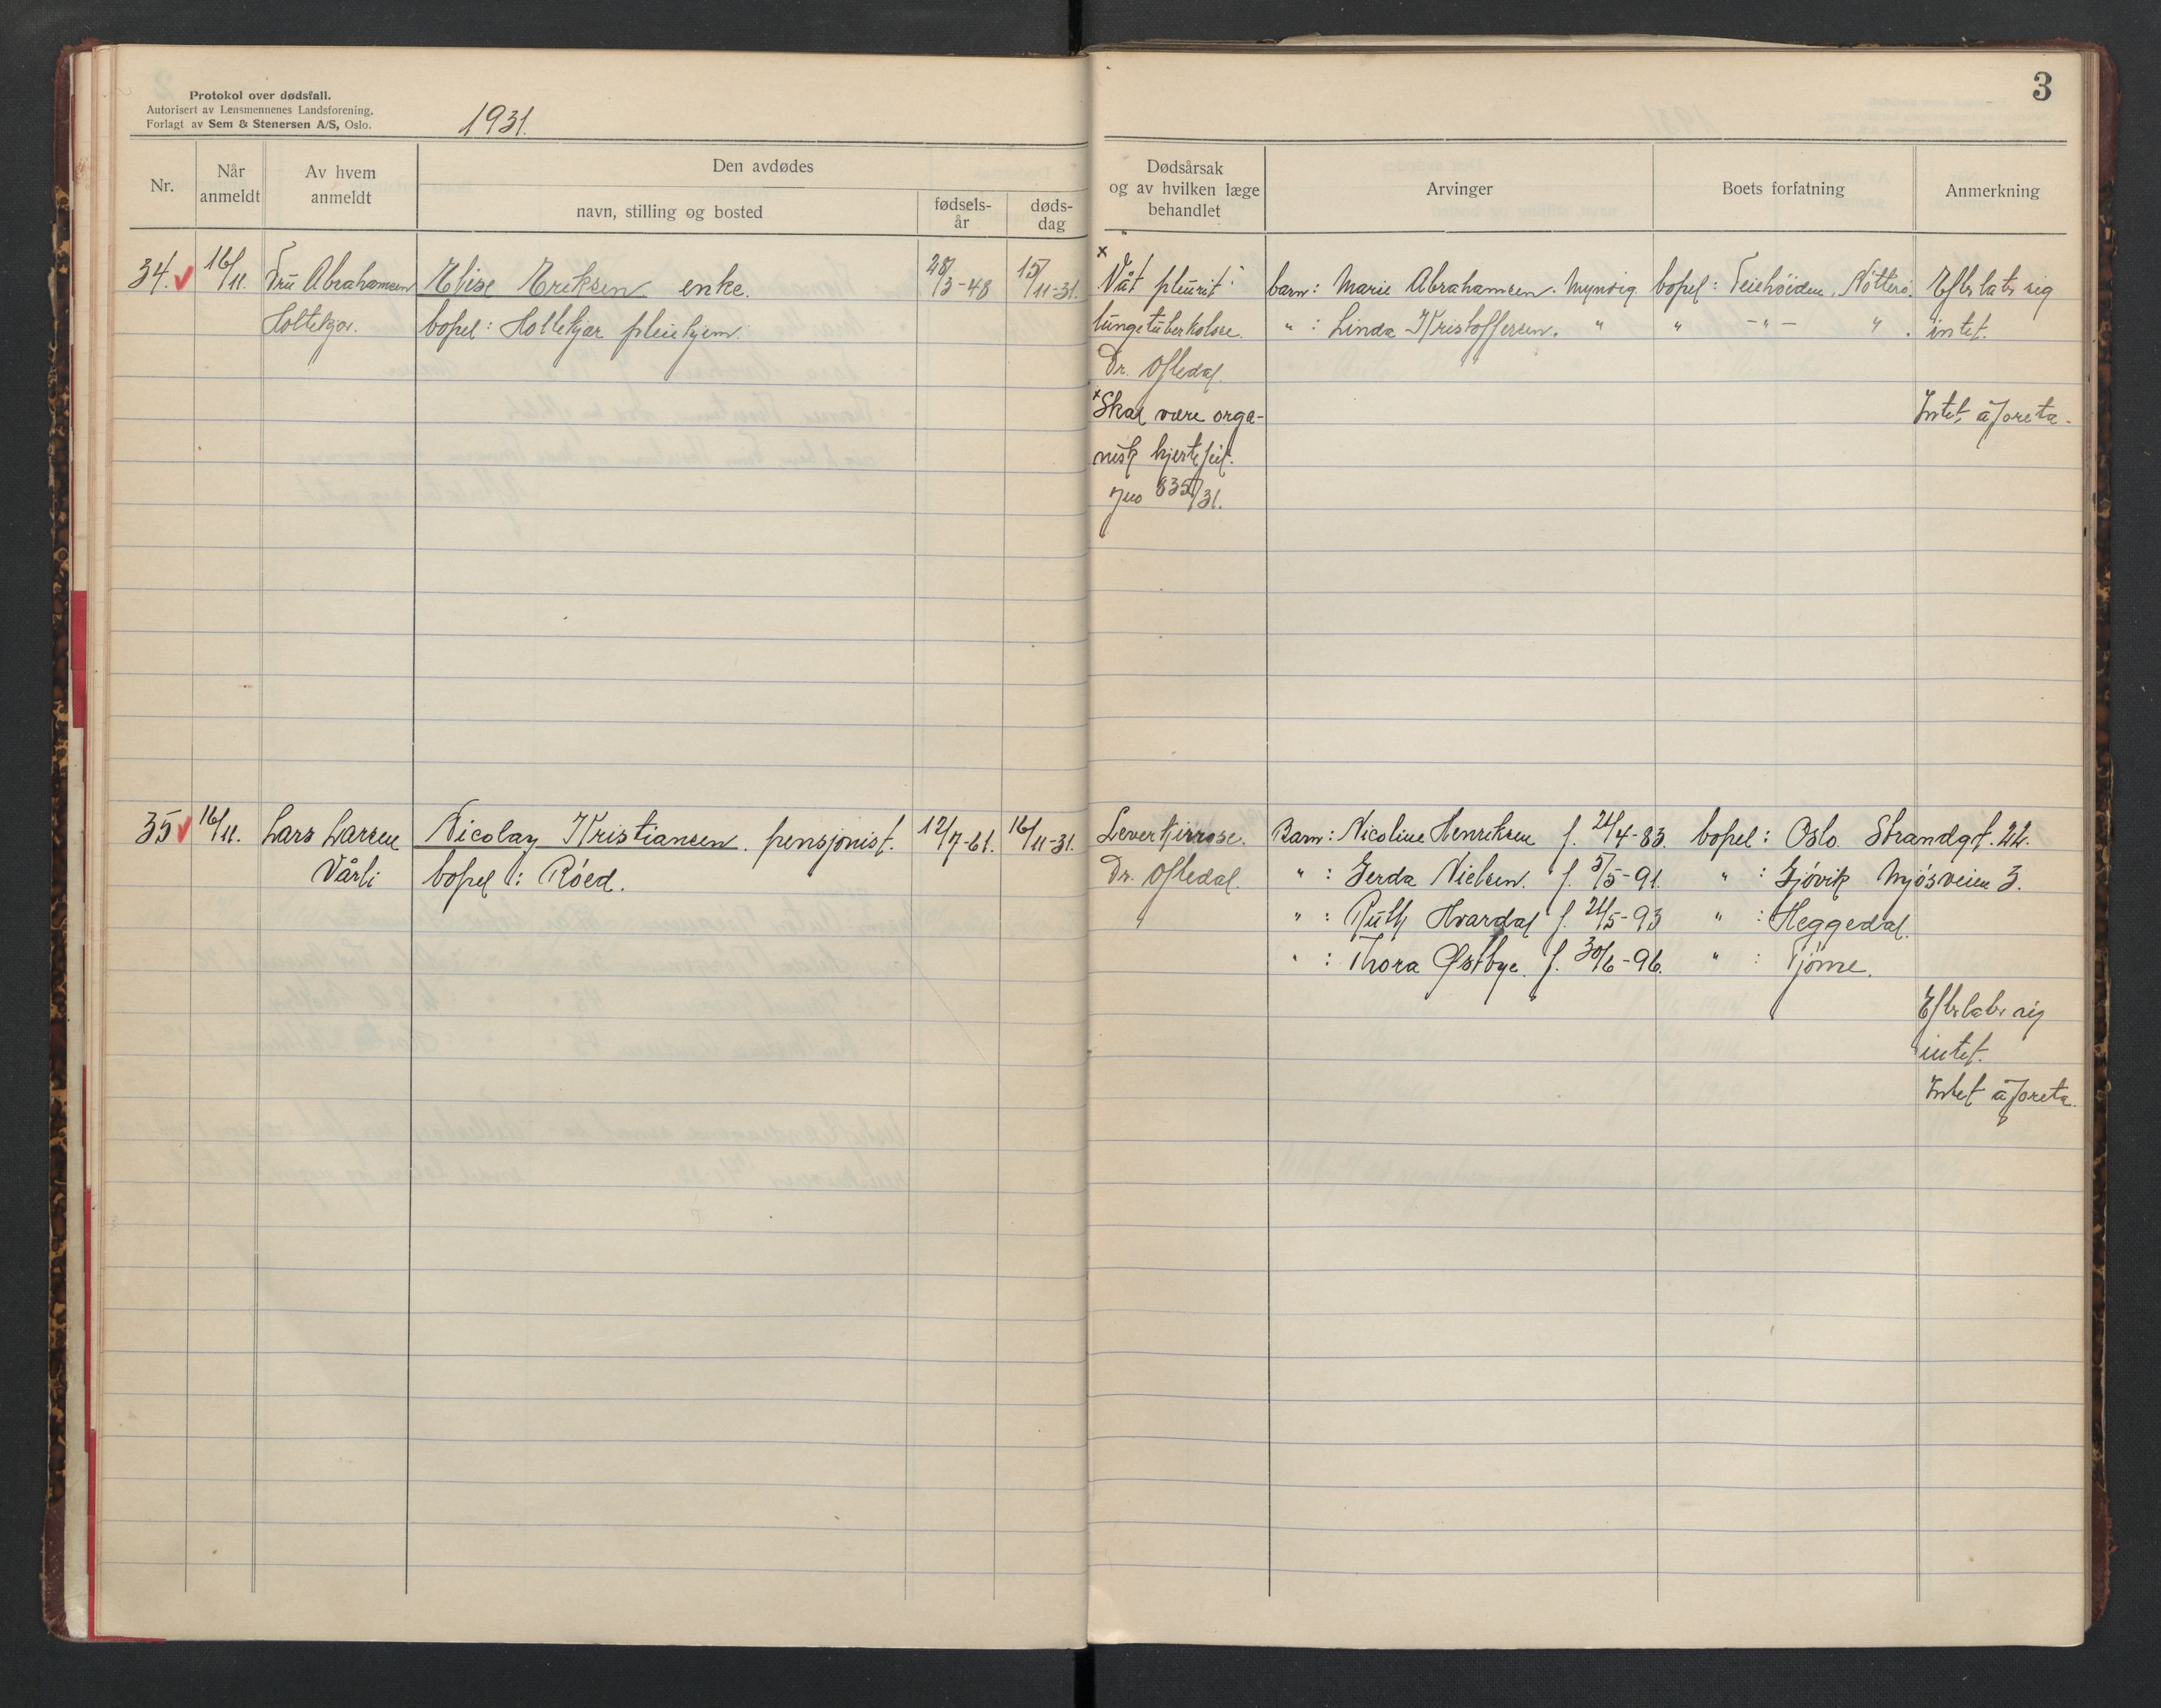 Protokol over dødsfall.
Autorisert av Lensmennenes Landsforening.
Forlagt av Sem & Stenersen A/S, Oslo.
1931.
3
Nr.
Når anmeldt
Av hvem anmeldt
Den avdødes
navn, stilling og bosted
fødsels-år
døds-dag
Dødsårsak og av hvilken læge behandlet
Arvinger
Boets forfatning
Anmerkning
34. 16/11. Fru Abrahamsen Elise Eriksen enke. 28/3-48 15/11-31. x Våt pleurit barn: Marie Abrahamsen. Myndig bopel: Teiehöiden, Nötterö. Efterlater sig
Holtekjær. bopel: Holtekjær pleiehjem. lungetuberkolose. " : Linda Kristoffersen. " " -"- " . intet.
Dr. Oftedal.
x Skal være orga- Intet å foreta.
nisk hjertefeil.
Jno 835/31.
35 16/11. Lars Larsen Nicolay Kristiansen. pensjonist. 12/7-61. 16/11-31. Levercirrose. Barn: Nicoline Henriksen f. 24/4-83. bopel: Oslo. Strandgt. 22.
Vårli bopel: Röed. Dr. Oftedal. " : Gerda Nielsen. f. 5/5-91. " : Gjövik Mjösveien 3.
" : Ruth Hvardal f. 21/5-93 " : Heggedal.
" : Thora Østbye. f. 30/6-96. " : Tjöme.
Efterlater sig
intet.
Intet å foreta.